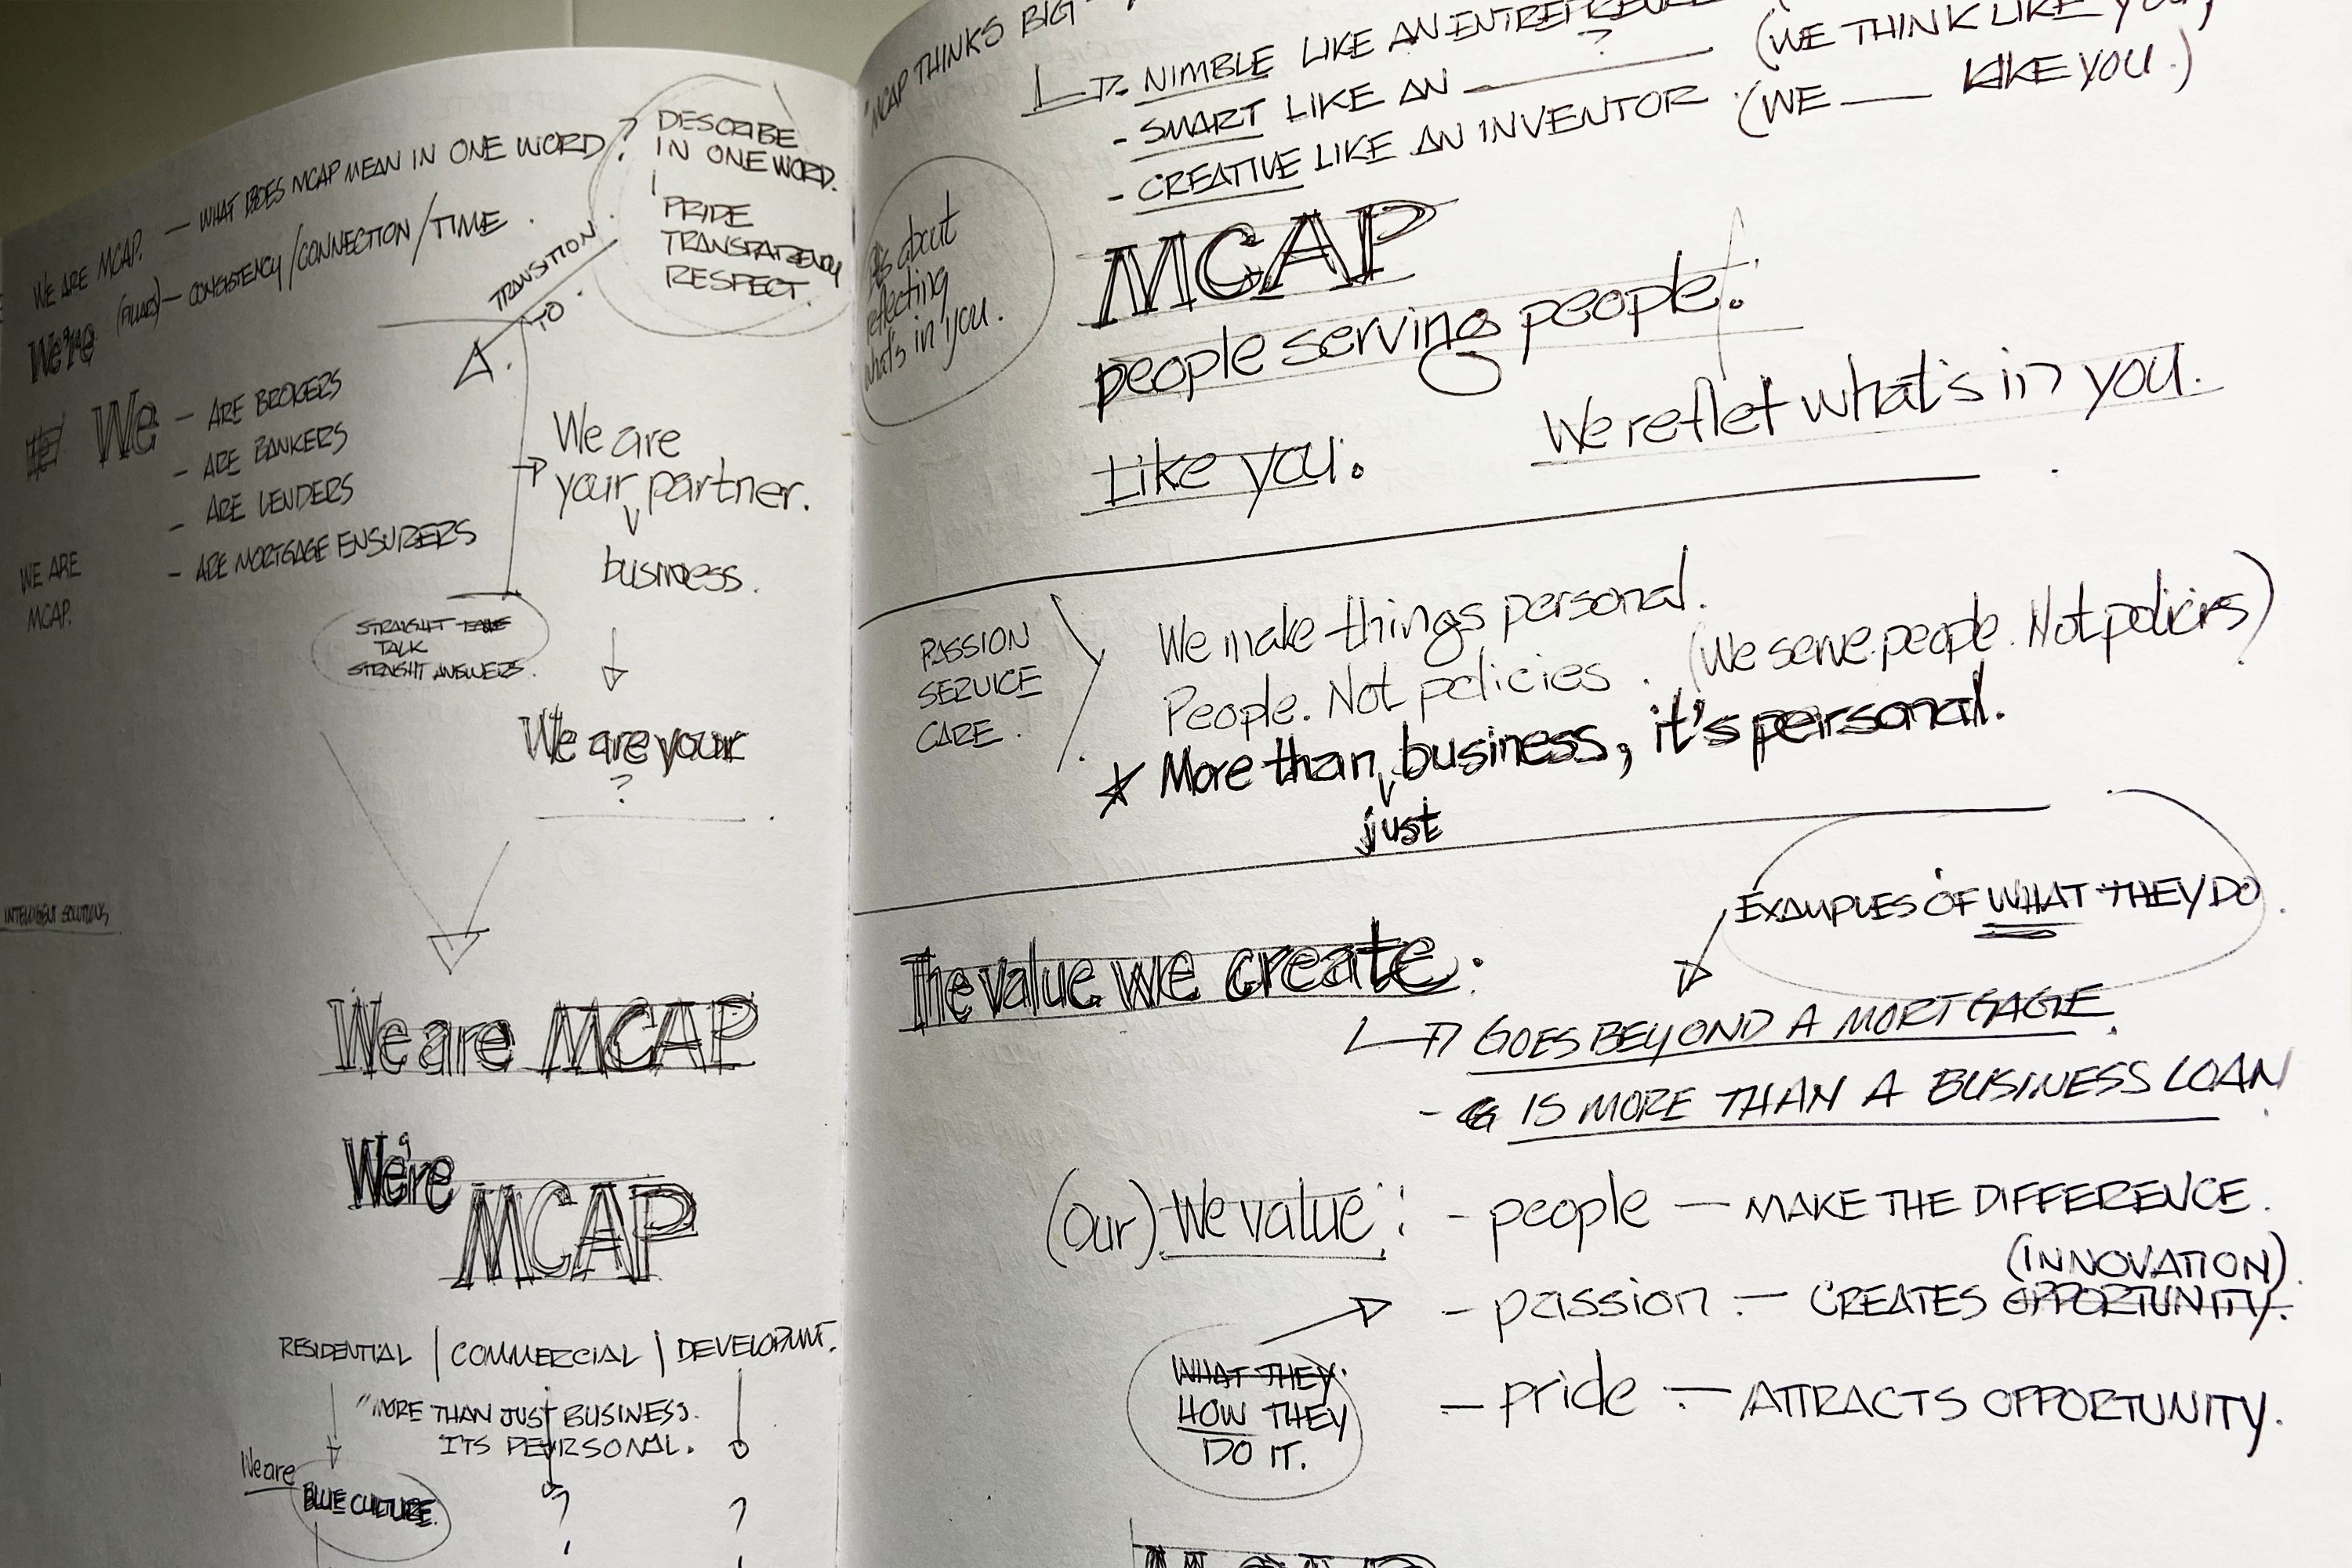 WE ARE MCAP. — WHAT DOES MCAP MEAN IN ONE WORD?
We're — CONSISTENCY/CONNECTION/TIME.
DESCRIBE
IN ONE WORD.
PRIDE
TRANSPARENCY
RESPECT.
TRANSITION
TO.
We — ARE BROKERS
- ARE BANKERS
- ARE LENDERS
- ARE MORTGAGE ENSURERS
WE ARE
MCAP.
We are
your partner.
business.
STRAIGHT
TALK
STRAIGHT ANSWERS.
We are your
?
INTELLIGENT SOLUTIONS
We are MCAP
We're
MCAP
RESIDENTIAL | COMMERCIAL | DEVELOPMNT.
"MORE THAN JUST BUSINESS.
ITS PERSONAL.
We are
BLUE CULTURE.
?
?
"MCAP THINKS BIG
NIMBLE LIKE AN ENTREPRENEUR (WE THINK LIKE YOU,
- SMART LIKE AN ____?____
- CREATIVE LIKE AN INVENTOR (WE ___ LIKE YOU.)
It's about
reflecting
what's in you.
MCAP
people serving people.
Like you.
We reflet what's in you.
PASSION
SERVICE
CARE.
We make things personal.
People. Not policies. (We serve people. Not policies)
More than business, it's personal.
just
EXAMPLES OF WHAT THEY DO.
The value we create.
GOES BEYOND A MORTGAGE.
- IS MORE THAN A BUSINESS LOAN
(Our) We value: - people — MAKE THE DIFFERENCE.
(INNOVATION)
- passion — CREATES OPPORTUNITY.
WHAT THEY
HOW THEY
DO IT.
- pride — ATTRACTS OPPORTUNITY.